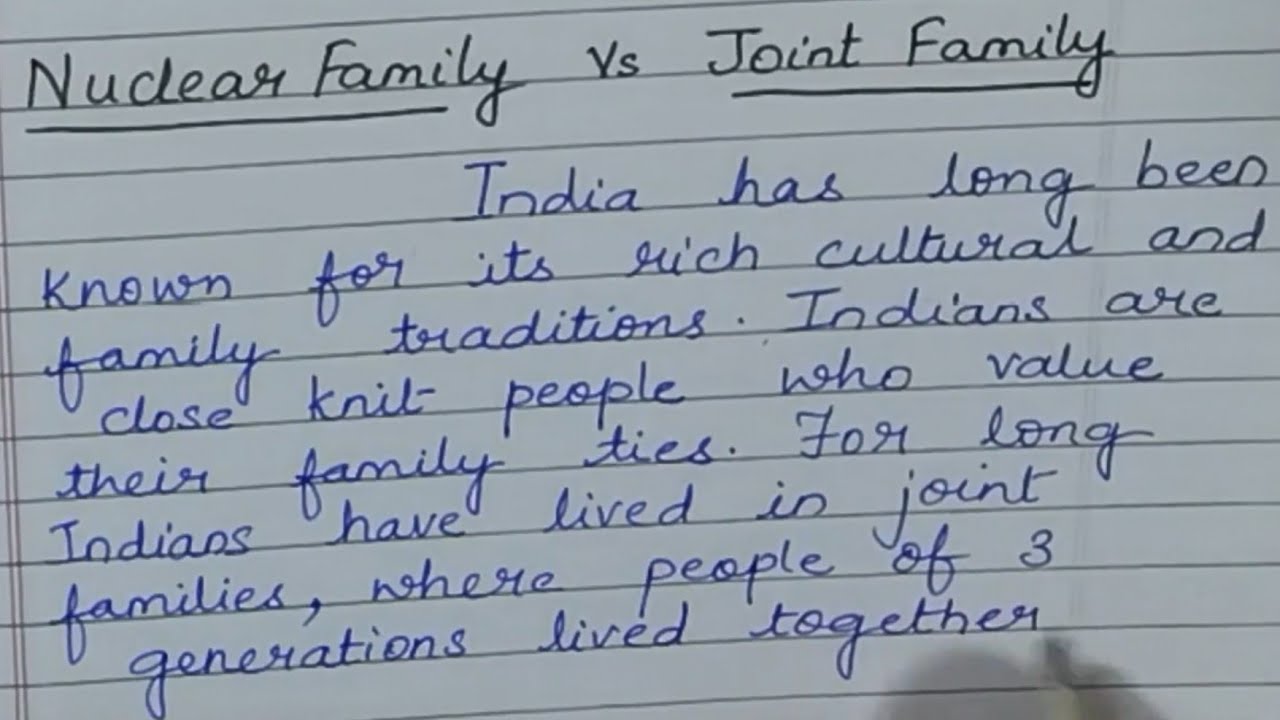 Nuclear Family Vs Joint Family
India has long been
known for its rich cultural and
family traditions. Indians are
close knit people who value
their family ties. For long
Indians have lived in joint
families, where people of 3
generations lived together